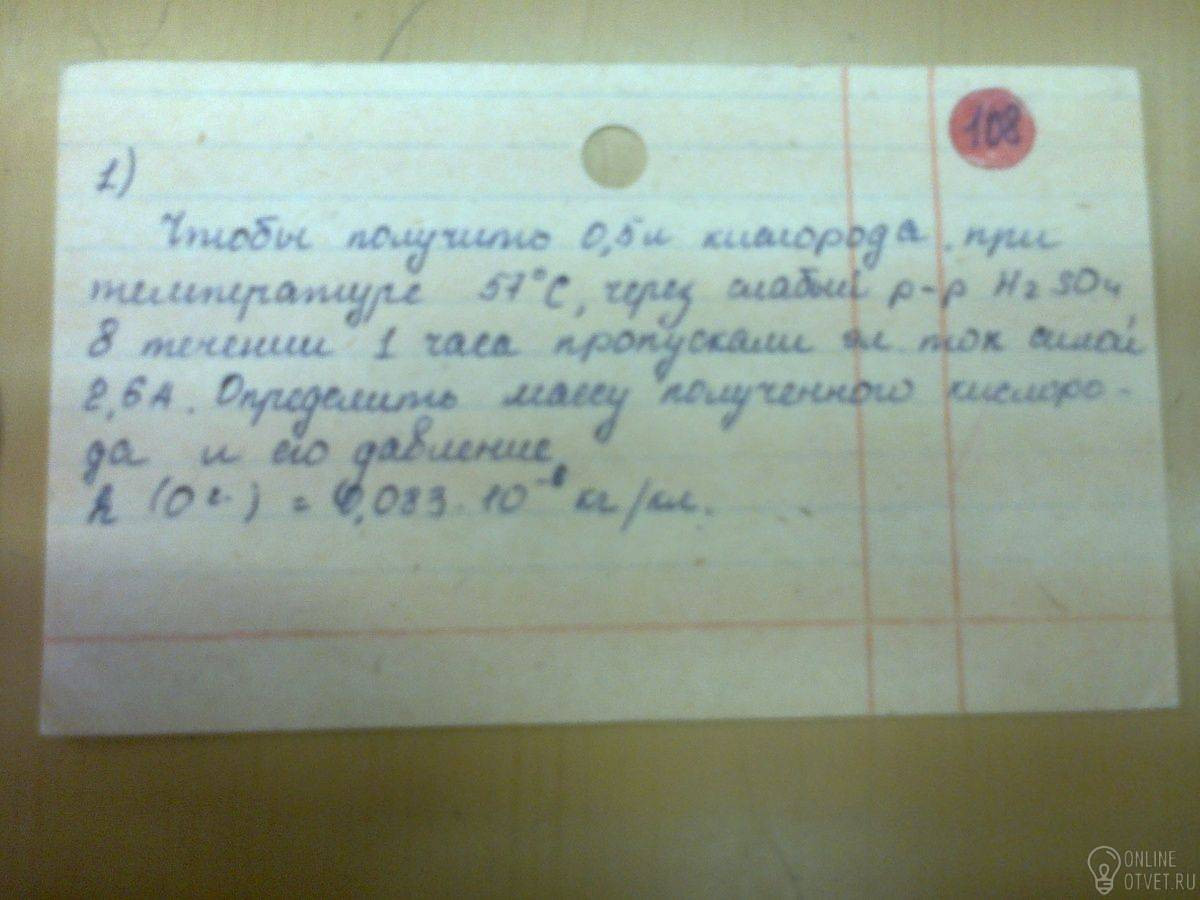 108
1)
Чтобы получить 0,5л кислорода при
температуре 57°С, через слабый р-р H₂SO₄
в течении 1 часа пропускали эл. ток силой
2,6А. Определить массу полученного кислоро-
да и его давление
k (O₂) = 0,083·10⁻⁶ кг/кл.
ONLINE
OTVET.RU